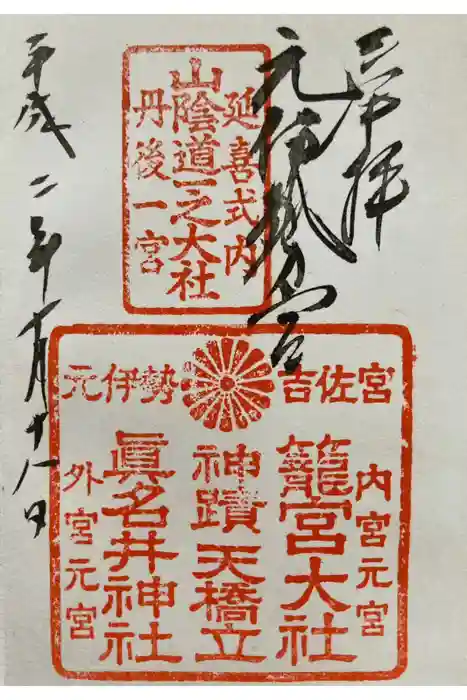 奉拝
元伊勢宮
延喜式内
山陰道一之大社
丹後一宮
平成二年十月十八日
元伊勢 吉佐宮
内宮元宮
籠宮大社
神蹟 天橋立
眞名井神社
外宮元宮